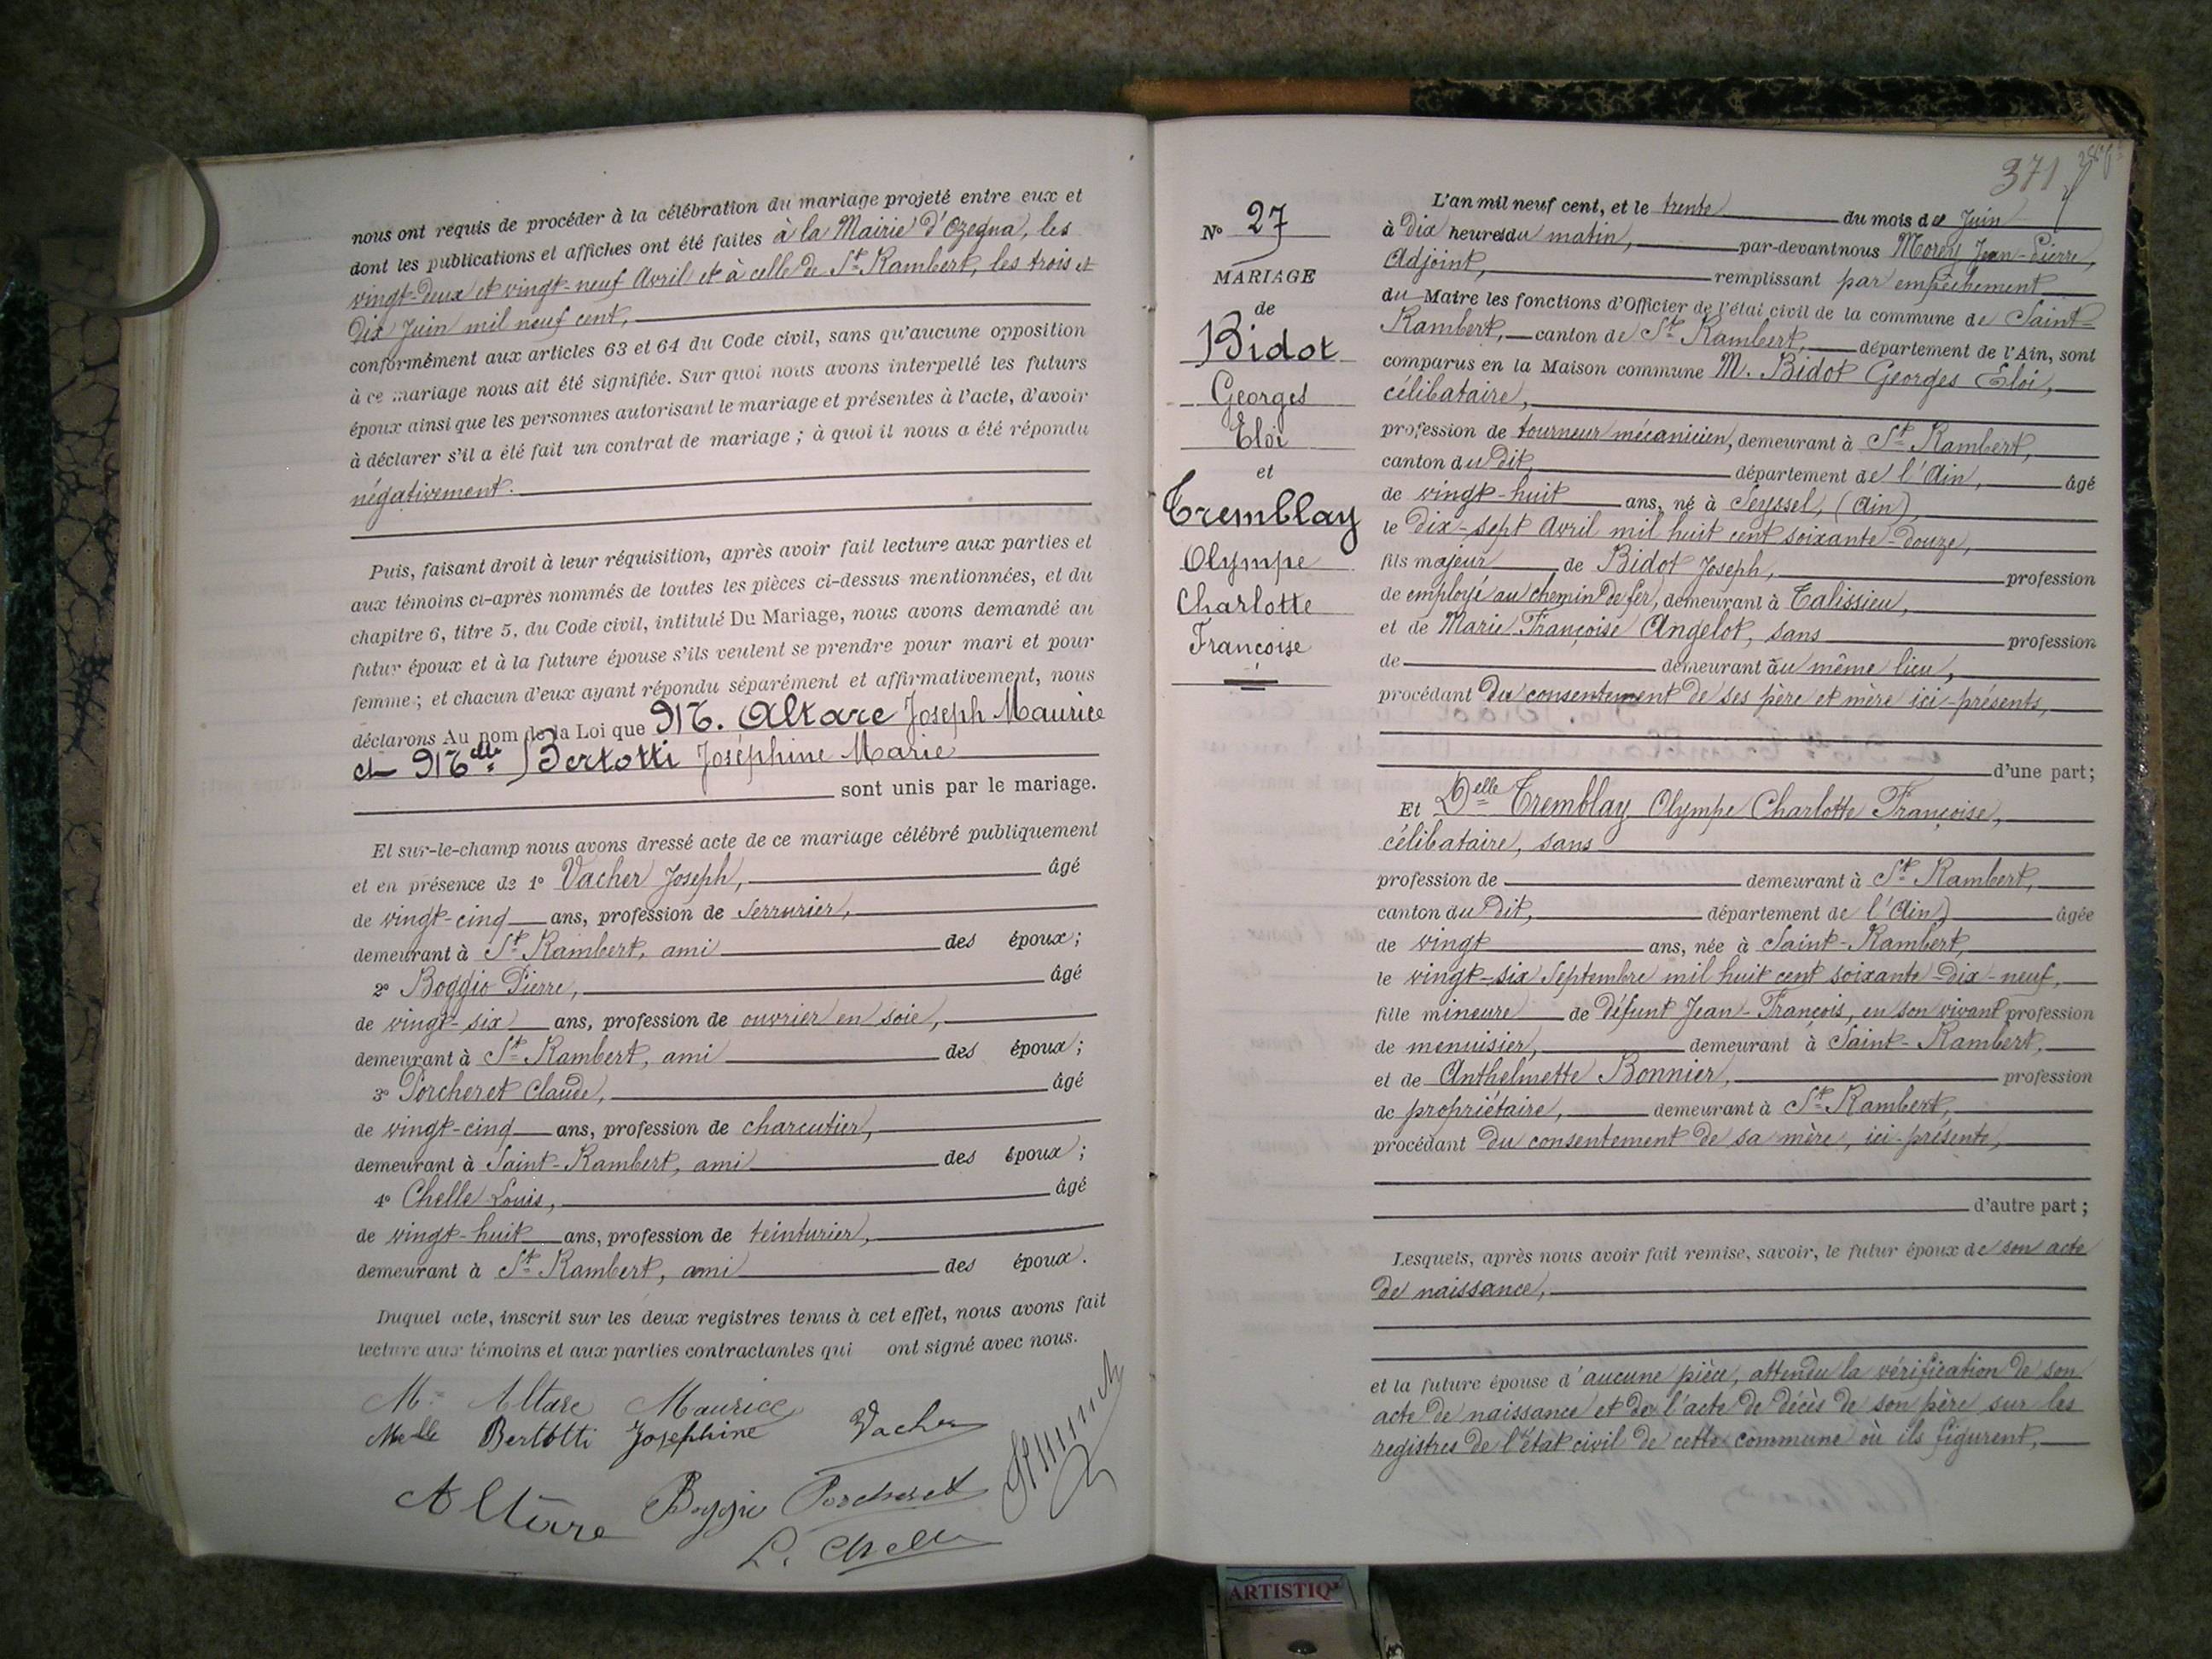 nous ont requis de procéder à la célébration du mariage projeté entre eux et
dont les publications et affiches ont été faites à la Mairie d'Ozegna, les
vingt-deux et vingt-neuf Avril et à celle de St Rambert, les trois et
dix Juin mil neuf cent,
conformément aux articles 63 et 64 du Code civil, sans qu'aucune opposition
à ce mariage nous ait été signifiée. Sur quoi nous avons interpellé les futurs
époux ainsi que les personnes autorisant le mariage et présentes à l'acte, d'avoir
à déclarer s'il a été fait un contrat de mariage ; à quoi il nous a été répondu
négativement.
Puis, faisant droit à leur réquisition, après avoir fait lecture aux parties et
aux témoins ci-après nommés de toutes les pièces ci-dessus mentionnées, et du
chapitre 6, titre 5, du Code civil, intitulé Du Mariage, nous avons demandé au
futur époux et à la future épouse s'ils veulent se prendre pour mari et pour
femme ; et chacun d'eux ayant répondu séparément et affirmativement, nous
déclarons Au nom de la Loi que M. Altare Joseph Maurice
et Melle Bertotti Joséphine Marie
sont unis par le mariage.
Et sur-le-champ nous avons dressé acte de ce mariage célébré publiquement
et en présence de 1° Vacher Joseph, âgé
de vingt-cinq ans, profession de serrurier,
demeurant à St Rambert, ami des époux ;
2° Boggio Pierre, âgé
de vingt-six ans, profession de ouvrier en soie,
demeurant à St Rambert, ami des époux ;
3° Porcheret Claude, âgé
de vingt-cinq ans, profession de charcutier,
demeurant à Saint-Rambert, ami des époux ;
4° Chelle Louis, âgé
de vingt-huit ans, profession de teinturier,
demeurant à St Rambert, ami des époux.
Duquel acte, inscrit sur les deux registres tenus à cet effet, nous avons fait
lecture aux témoins et aux parties contractantes qui ont signé avec nous.
Mr Altare Maurice
Melle Bertotti Josephine Vacher
Altare Boggio Porcheret
L. Chelle
371
N° 27
MARIAGE
de
Bidot
Georges
Eloi
et
Tremblay
Olympe
Charlotte
Françoise
L'an mil neuf cent, et le trente du mois de Juin
à dix heures du matin, par-devant nous Morey Jean-Pierre,
Adjoint, remplissant par empêchement
du Maire les fonctions d'Officier de l'état civil de la commune de Saint-
Rambert, canton de St Rambert, département de l'Ain, sont
comparus en la Maison commune M. Bidot Georges Eloi,
célibataire,
profession de tourneur mécanicien, demeurant à St Rambert,
canton du dit, département de l'Ain, âgé
de vingt-huit ans, né à Seyssel, (Ain)
le dix-sept Avril mil huit cent soixante-douze,
fils majeur de Bidot Joseph, profession
de employé au chemin de fer, demeurant à Talissieu,
et de Marie Françoise Angelot, sans profession
de demeurant au même lieu,
procédant du consentement de ses père et mère ici-présents,
d'une part ;
Et Delle Tremblay Olympe Charlotte Françoise,
célibataire, sans
profession de demeurant à St Rambert,
canton du dit, département de l'Ain) âgée
de vingt ans, née à Saint-Rambert,
le vingt-six Septembre mil huit cent soixante-dix-neuf,
fille mineure de défunt Jean-François, en son vivant profession
de menuisier, demeurant à Saint-Rambert,
et de Anthelmette Bonnier, profession
de propriétaire, demeurant à St Rambert,
procédant du consentement de sa mère, ici-présente,
d'autre part ;
Lesquels, après nous avoir fait remise, savoir, le futur époux de son acte
de naissance,
et la future épouse d'aucune pièce, attendu la vérification de son
acte de naissance et de l'acte de décès de son père sur les
registres de l'état civil de cette commune où ils figurent,
ARTISTIQ